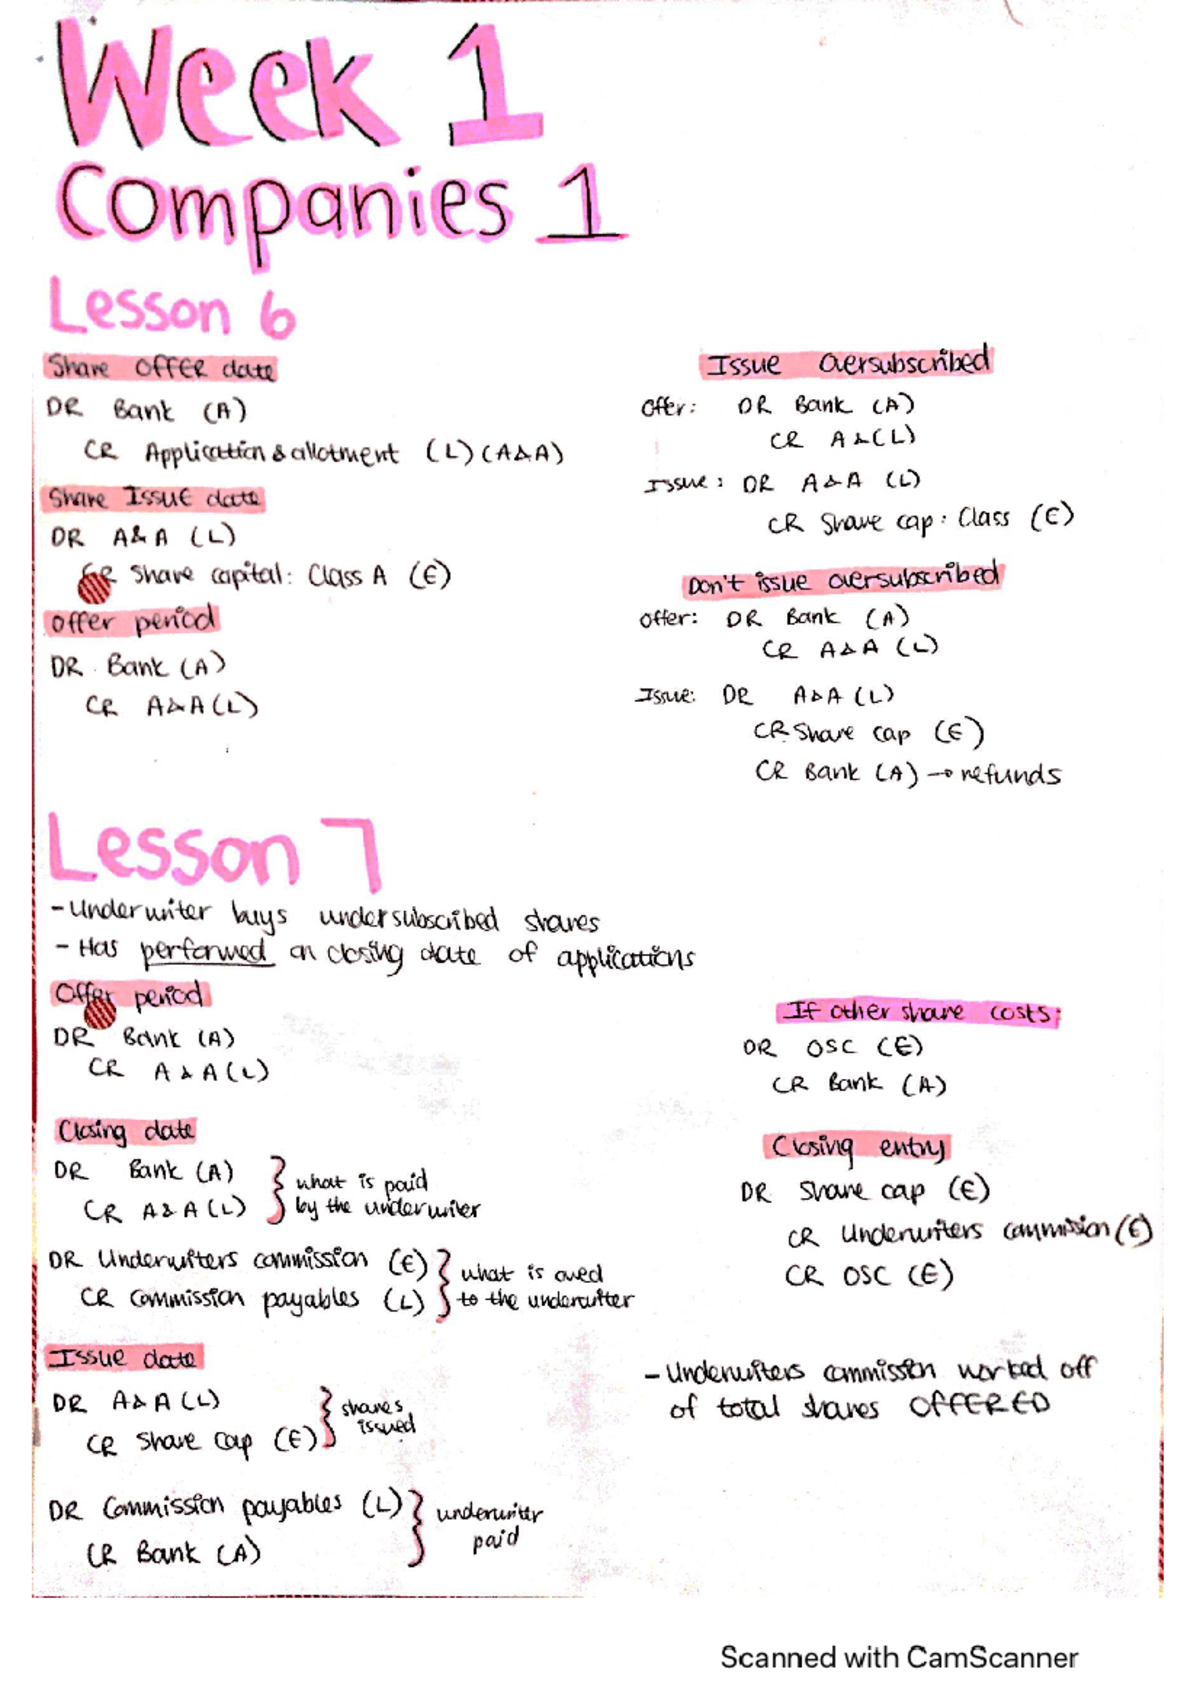 Week 1
Companies 1
Lesson 6
Share OFFER date
DR Bank (A)
CR Application & allotment (L) (A&A)
Share ISSUE date
DR A&A (L)
CR Share capital: Class A (E)
Offer period
DR Bank (A)
CR A&A (L)
Issue oversubscribed
Offer: DR Bank (A)
CR A&(L)
Issue: DR A&A (L)
CR Share cap: Class (E)
Don't issue oversubscribed
Offer: DR Bank (A)
CR A&A (L)
Issue: DR A&A (L)
CR Share cap (E)
CR Bank (A) → refunds
Lesson 7
- Underwriter buys undersubscribed shares
- Has performed on closing date of applications
Offer period
DR Bank (A)
CR A&A (L)
Closing date
DR Bank (A)
CR A&A (L)
what is paid
by the underwriter
DR Underwriters commission (E)
CR Commission payables (L)
what is owed
to the underwriter
Issue date
DR A&A (L)
CR Share cap (E)
shares
issued
DR Commission payables (L)
CR Bank (A)
underwriter
paid
If other share costs:
DR OSC (E)
CR Bank (A)
Closing entry
DR Share cap (E)
CR Underwriters commision (E)
CR OSC (E)
- Underwriters commission worked off
of total shares OFFERED
Scanned with CamScanner